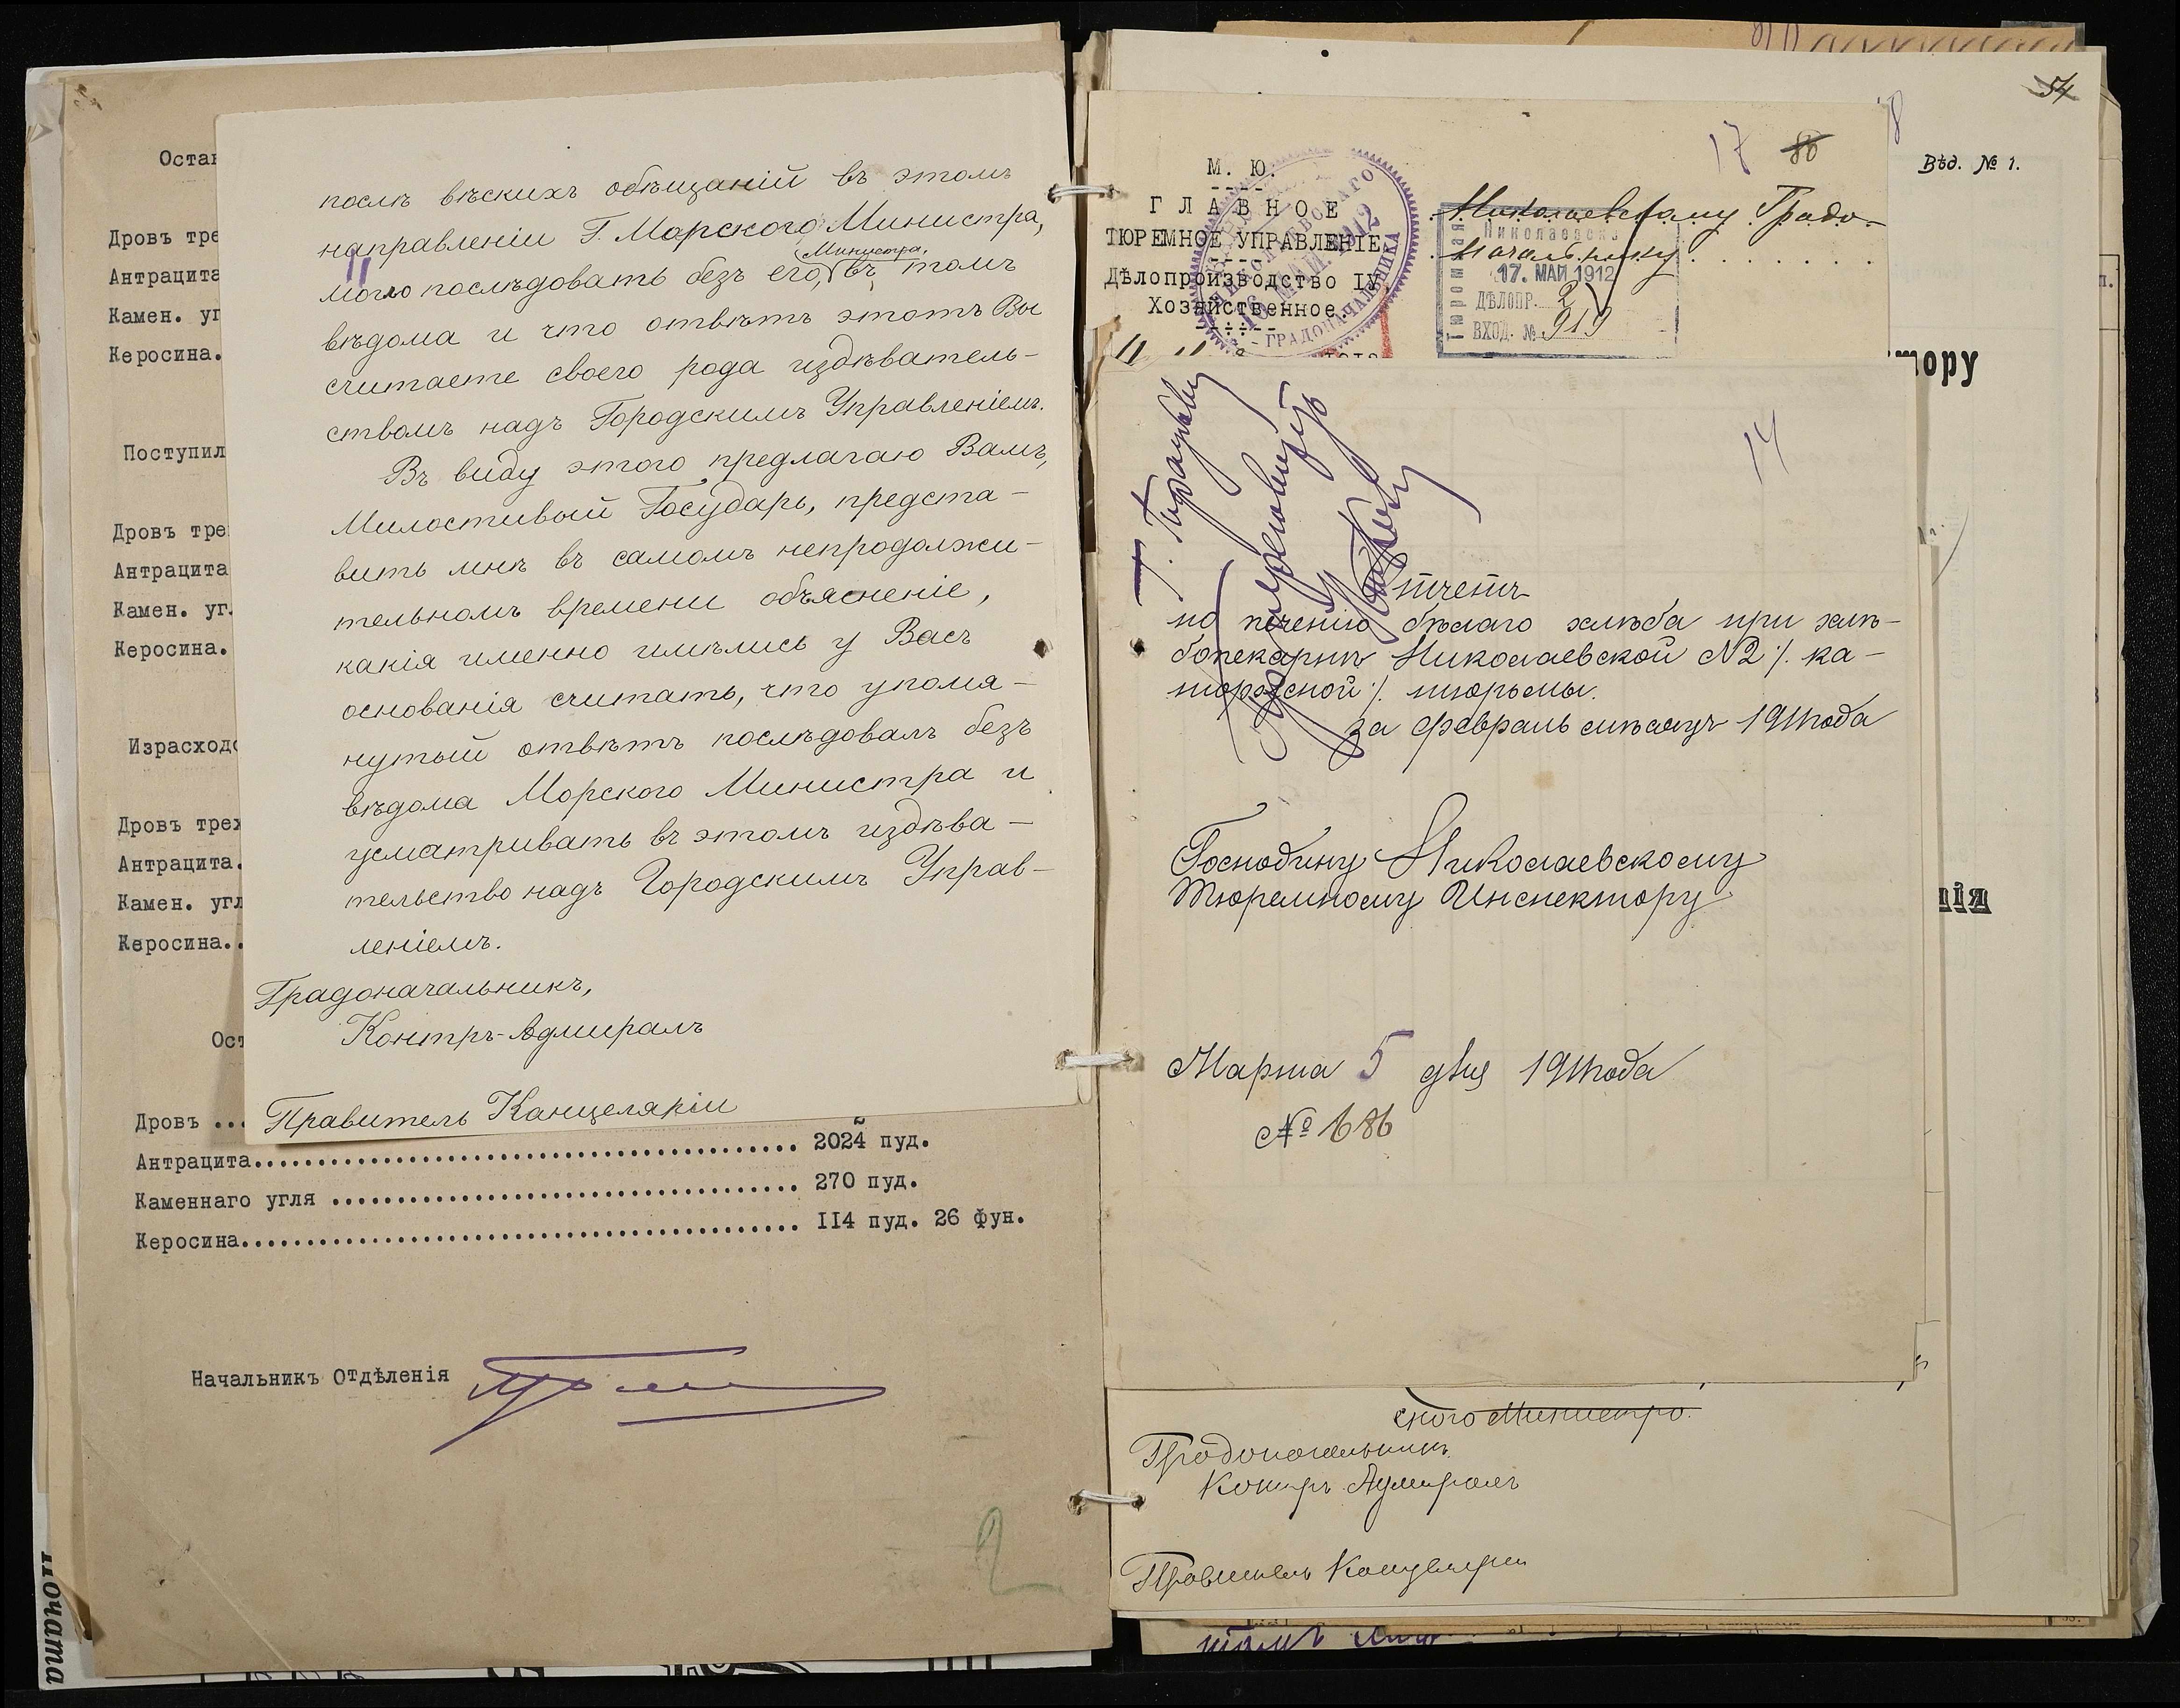 Остан
Дровъ тре
Антрацита
Камен. уг
Керосина.
Поступил
Дровъ тре
Антрацита
Камен. уг.
Керосина.
Израсходо
Дровъ трех
Антрацита.
Камен. угл
Керосина..
Ост
Дровъ ...
Антрацита........ 2024 пуд.
Каменнаго угля ........ 270 пуд.
Керосина........ II4 пуд. 26 фун.
Начальникъ Отдѣленія
2
почата
послѣ вѣскихъ обѣщаній въ этомъ
направленіи Г. Морского Министра,
Министра,
могло послѣдовать безъ его, въ томъ
вѣдома и что отвѣтъ этотъ Вы
считаете своего рода издѣватель-
ствомъ надъ Городскимъ Управленіемъ.
Въ виду этого предлагаю Вамъ,
Милостивый Государь, предста-
вить мнѣ въ самомъ непродолжи-
тельномъ времени объясненіе,
какія именно имѣлись у Васъ
основанія считать, что упомя-
нутый отвѣтъ послѣдовалъ безъ
вѣдома Морского Министра и
усматривать въ этомъ издѣва-
тельство надъ Городскимъ Управ-
леніемъ.
Градоначальникъ,
Контръ-Адмиралъ
Правитель Канцеляріи
54
8
Вѣд. № 1.
17 86
М. Ю.
ГЛАВНОЕ
ТЮРЕМНОЕ УПРАВЛЕНІЕ.
Дѣлопроизводство IУ
Хозяйственное.
16 МАЙ 1912
ГРАДОНАЧАЛЬНИКА
Николаевскому Градо-
начальнику
Николаевск
17. МАЙ 1912
ДѢЛОПР. 2
ВХОД. № 919
тору
ція
14
Отчетъ
по печенію бѣлаго хлѣба при хлѣ-
бопекарнѣ Николаевской №2 /. ка-
торжной /. тюрьмы.
за февраль мѣсяцъ 1911 года
Господину Николаевскому
Тюремному Инспектору
Марта 5 дня 1911 года
№ 686
ского Министра.
Градоначальникъ
Контръ Адмиралъ
Правитель Канцеляріи